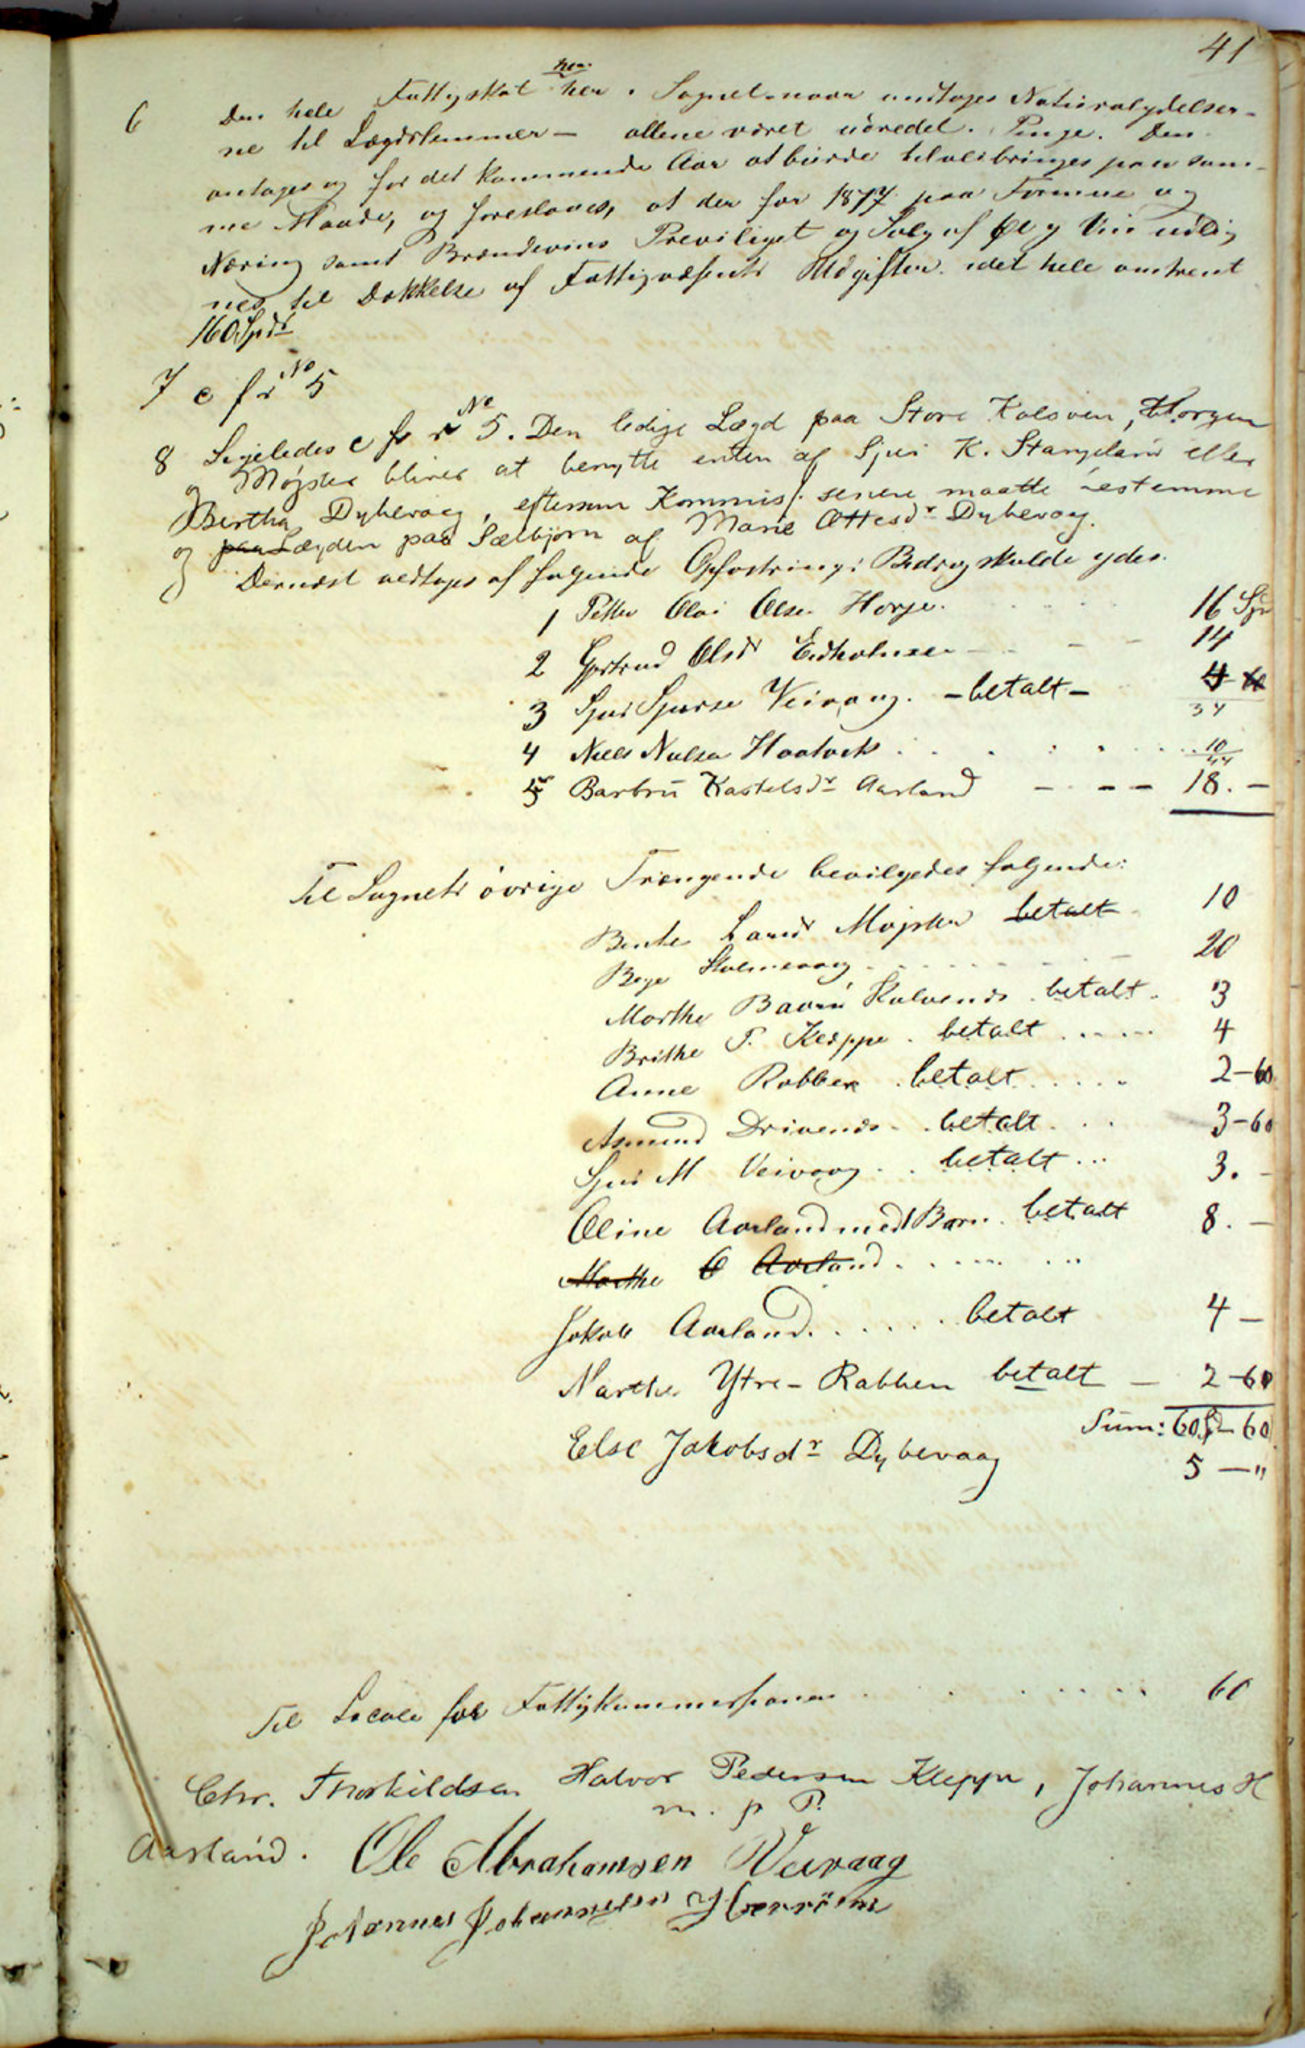 41
6 Den hele Fattigskat her i Sognet naar undtages Naturalydelser-
ne til Lægdslemmer — allene været udredet i Penge. Den
antages og for det kommende Aar at burde tilveiebringes paa sam-
me Maade, og foreslaaes, at der for 1877 paa Formue og
Næring samt Brændevins Previliget og Salg af Øl og Vin udlig
nes til Dækkelse af Fattigvæsenets Udgifter i det hele omtrent
160 Spdr
7 cfr No 5
8 Ligeledes cfr No 5. Den ledige Lægd paa Store Kalsøen,
og Møgster bliver at benytte enten af Sjur K. Stangeland eller
Bertha Dybevaag, eftersom Kommis. senere maatte bestemme
og Lægden paa Selbjørn af Marie Ottesdr Dybevaag.
Dernæst vedtages at følgende Opfostrings Bidrag skulde ydes.
1 Petter Olai Olsen Horge. 16 Spd
2 Gjertrud Olsdr Eidholmen 14
3 Sjur Sjursen Veivaag. - betalt - 4
34
4 Niels Nielsen Haatvek 10
44
5 Barbru Kastelsdr Aarland 18. -
Til Sognets øvrige Trængende bevilgedes følgende:
Bente Larsdr Møgster betalt 10
Børge Stolmevaag 20
Marthe Kulvends betalt. 3
Brithe P. Kleppe . betalt 4
Anne Rabben . betalt 2-60
Asmund Drivenes . betalt 3-60
Sjur M Veivaag . . betalt ... 3. -
Oline Aarland med Barn . betalt 8. -
Marthe O Aarland
Jakob Aarland. betalt 4 -
Marthe Ytre-Rabben betalt - 2-60
Sum: 60 Spd - 60
Else Jakobsdr Dybevaag 5 - "
Til Locale for Fattigkommissionen 60
Chr. Thorkildsen Halvor Pedersen Kleppe, Johannes H
m. p. P.
Aarland. Ole Abrahamsen Veivaag
Johannes Johannesen